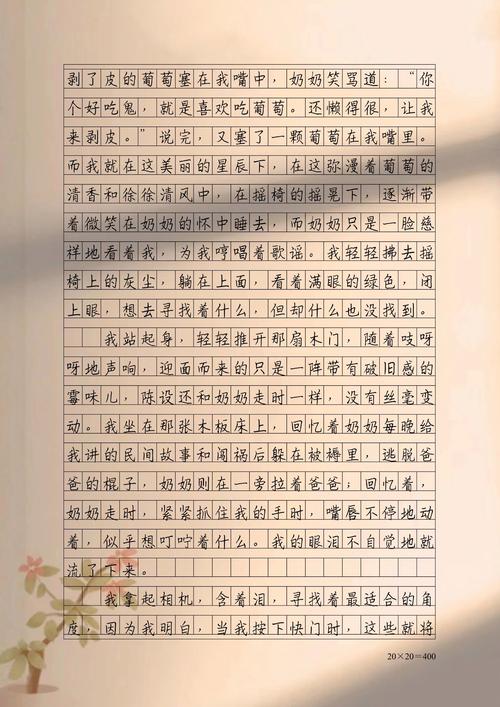 剥了皮的葡萄塞在我嘴中，奶奶笑骂道：“你
个好吃鬼，就是喜欢吃葡萄。还懒得很，让我
来剥皮。”说完，又塞了一颗葡萄在我嘴里。
而我就在这美丽的星辰下，在这弥漫着葡萄的
清香和徐徐清风中，在摇椅的摇晃下，逐渐带
着微笑在奶奶的怀中睡去，而奶奶只是一脸慈
祥地看着我，为我哼唱着歌谣。我轻轻拂去摇
椅上的灰尘，躺在上面，看着满眼的绿色，闭
上眼，想去寻找着什么，但却什么也没找到。
我站起身，轻轻推开那扇木门，随着吱呀
呀地声响，迎面而来的只是一阵带有破旧感的
霉味儿，陈设还和奶奶走时一样，没有丝毫变
动。我坐在那张木板床上，回忆着奶奶每晚给
我讲的民间故事和闯祸后躲在被褥里，逃脱爸
爸的棍子，奶奶则在一旁拉着爸爸；回忆着，
奶奶走时，紧紧抓住我的手时，嘴唇不停地动
着，似乎想叮咛着什么。我的眼泪不自觉地就
流了下来。
我拿起相机，含着泪，寻找着最适合的角
度，因为我明白，当我按下快门时，这些就将
20×20=400